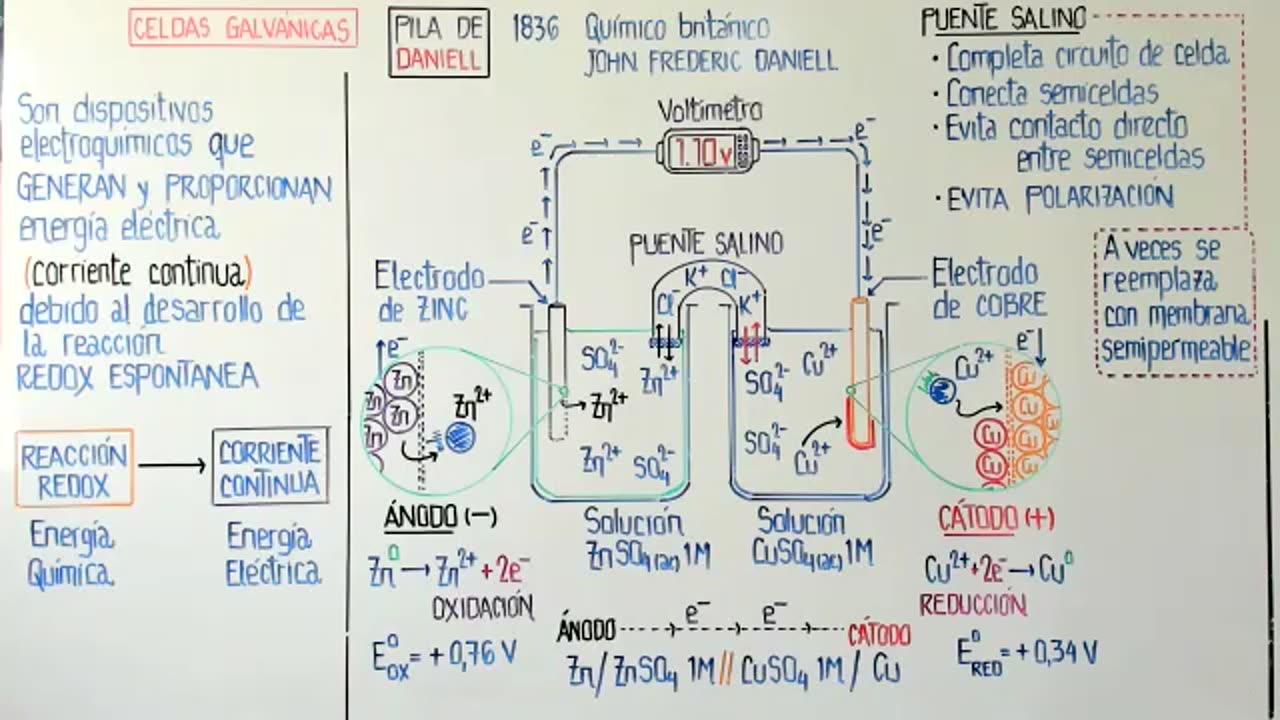 CELDAS GALVÁNICAS
Son dispositivos
electroquímicos que
GENERAN y PROPORCIONAN
energía eléctrica
(corriente continua)
debido al desarrollo de
la reacción
REDOX ESPONTANEA
REACCIÓN
REDOX
CORRIENTE
CONTINUA
Energía
Química
Energía
Eléctrica
PILA DE
DANIELL
1836 Químico británico
JOHN FREDERIC DANIELL
Voltímetro
1.10 v
e⁻
e⁻
e⁻
e⁻
PUENTE SALINO
K⁺ Cl⁻
Cl⁻ K⁺
Electrodo
de ZINC
Electrodo
de COBRE
e⁻
Zn
Zn
Zn
Zn
Zn²⁺
SO₄²⁻
Zn²⁺
Zn²⁺
Zn²⁺
SO₄²⁻
Cu²⁺
SO₄²⁻
SO₄²⁻
Cu²⁺
e⁻
Cu²⁺
Cu
Cu
Cu
Cu
Cu
ÁNODO (-)
Zn⁰ → Zn²⁺ + 2e⁻
OXIDACIÓN
E⁰OX = + 0,76 V
Solución
ZnSO₄(ac) 1M
Solución
CuSO₄(ac) 1M
CÁTODO (+)
Cu²⁺ + 2e⁻ → Cu⁰
REDUCCIÓN
E⁰RED = + 0,34 V
ÁNODO e⁻ e⁻ CÁTODO
Zn / ZnSO₄ 1M // CuSO₄ 1M / Cu
PUENTE SALINO
· Completa circuito de celda
· Conecta semiceldas
· Evita contacto directo
entre semiceldas
· EVITA POLARIZACIÓN
A veces se
reemplaza
con membrana
semipermeable